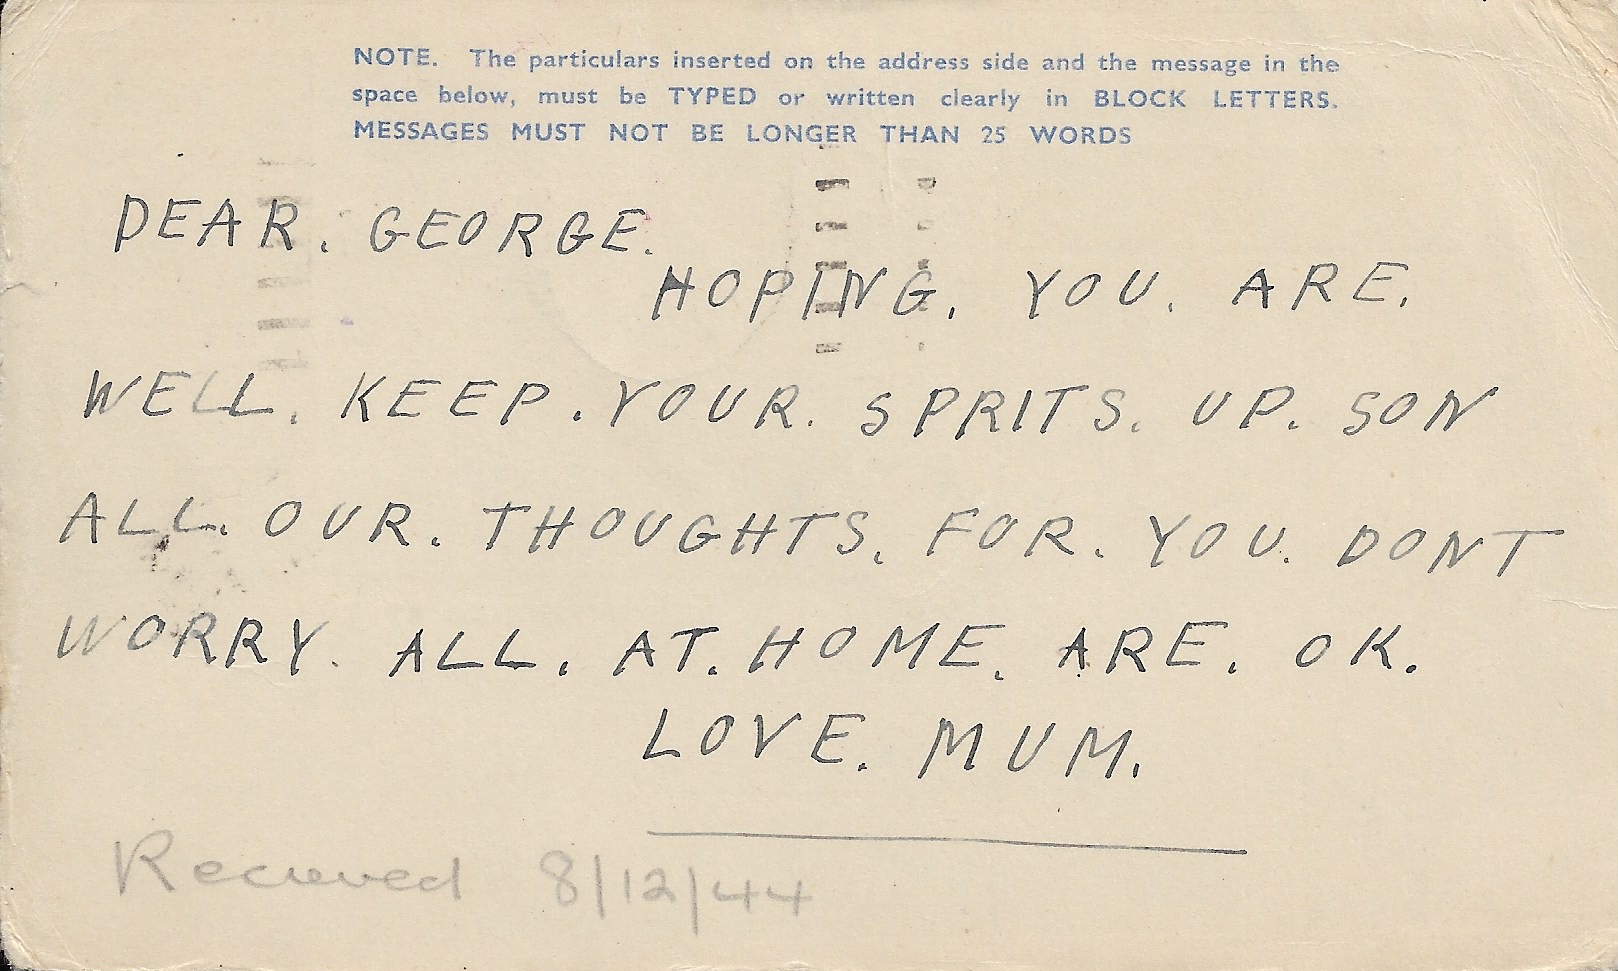 NOTE. The particulars inserted on the address side and the message in the
space below, must be TYPED or written clearly in BLOCK LETTERS.
MESSAGES MUST NOT BE LONGER THAN 25 WORDS
DEAR. GEORGE.
HOPING. YOU. ARE.
WELL. KEEP. YOUR. SPRITS. UP. SON
ALL. OUR. THOUGHTS. FOR. YOU. DONT
WORRY. ALL. AT. HOME. ARE. OK.
LOVE. MUM.
Recieved 8/12/44